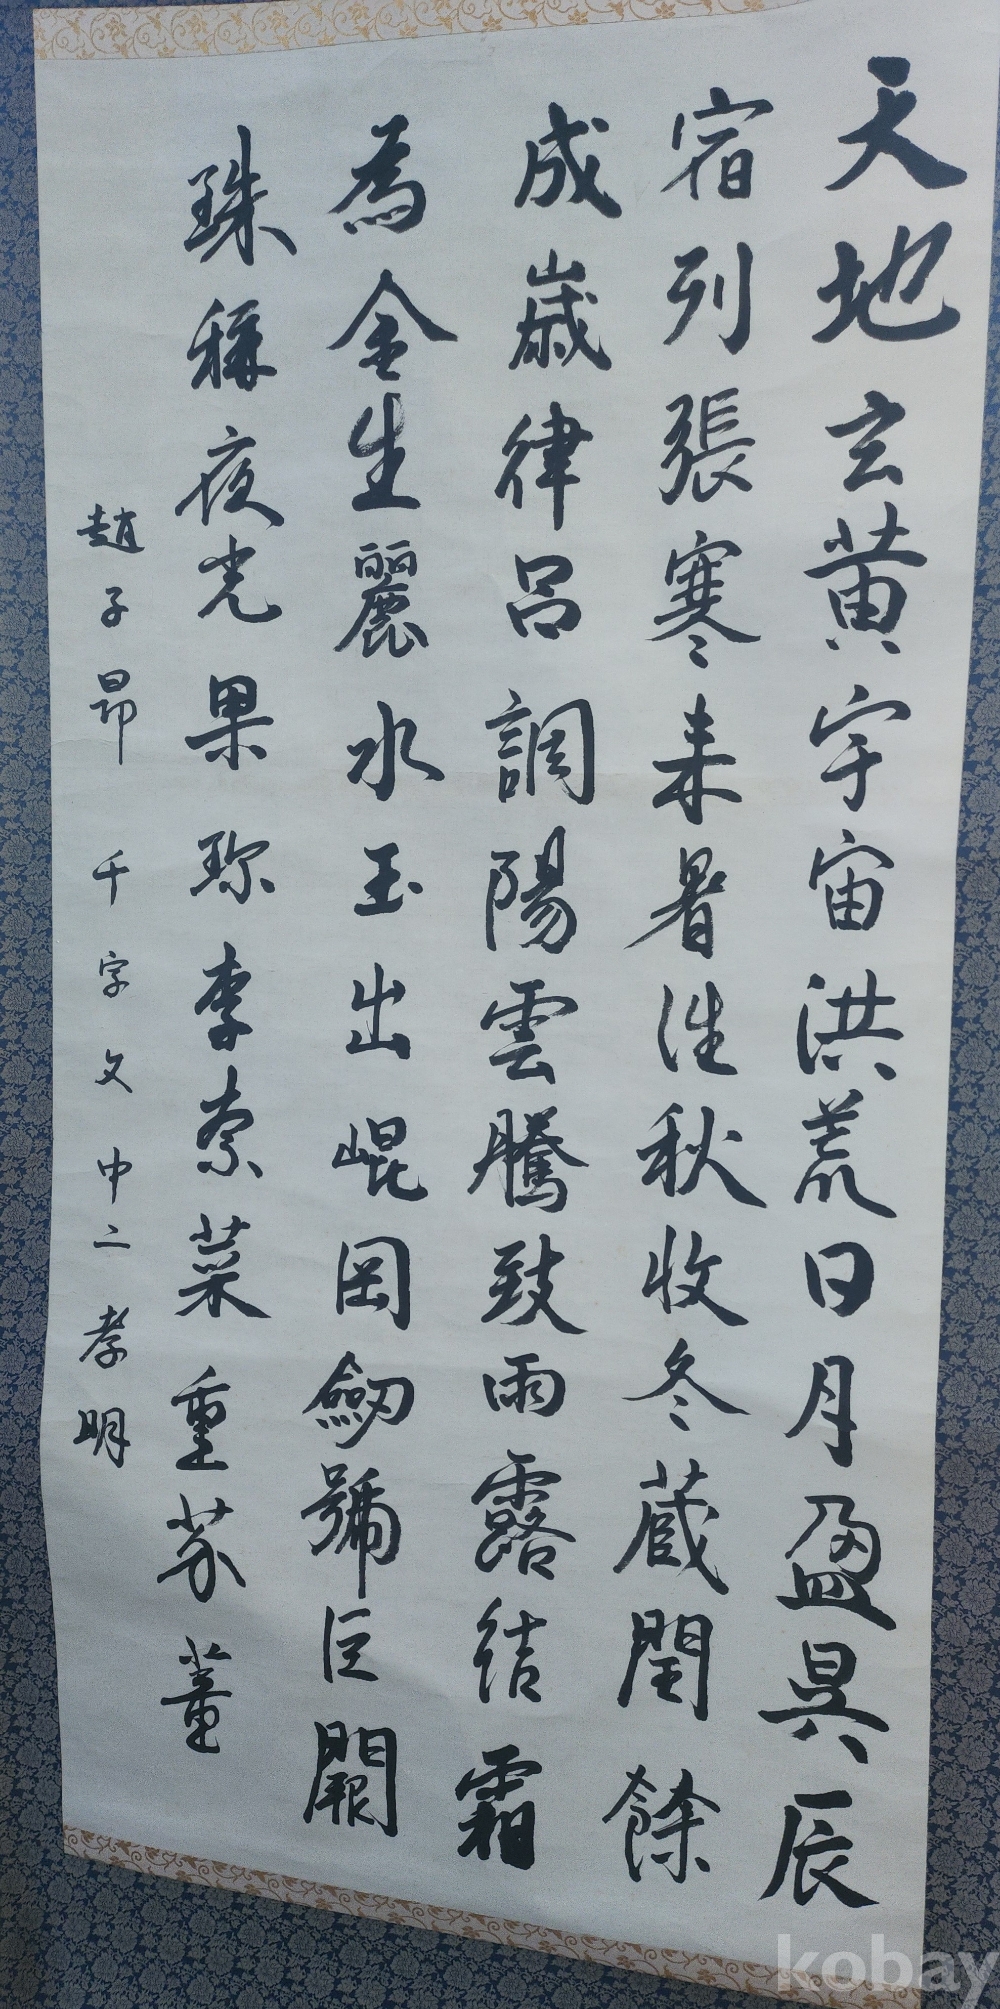 天地玄黄宇宙洪荒日月盈昃辰
宿列張寒来暑往秋収冬蔵閏餘
成歳律呂調陽雲騰致雨露結霜
為金生麗水玉出崐岡劒號巨闕
珠稱夜光果珎李柰菜重芥薑
趙子昂 千字文中二 孝明
kobay